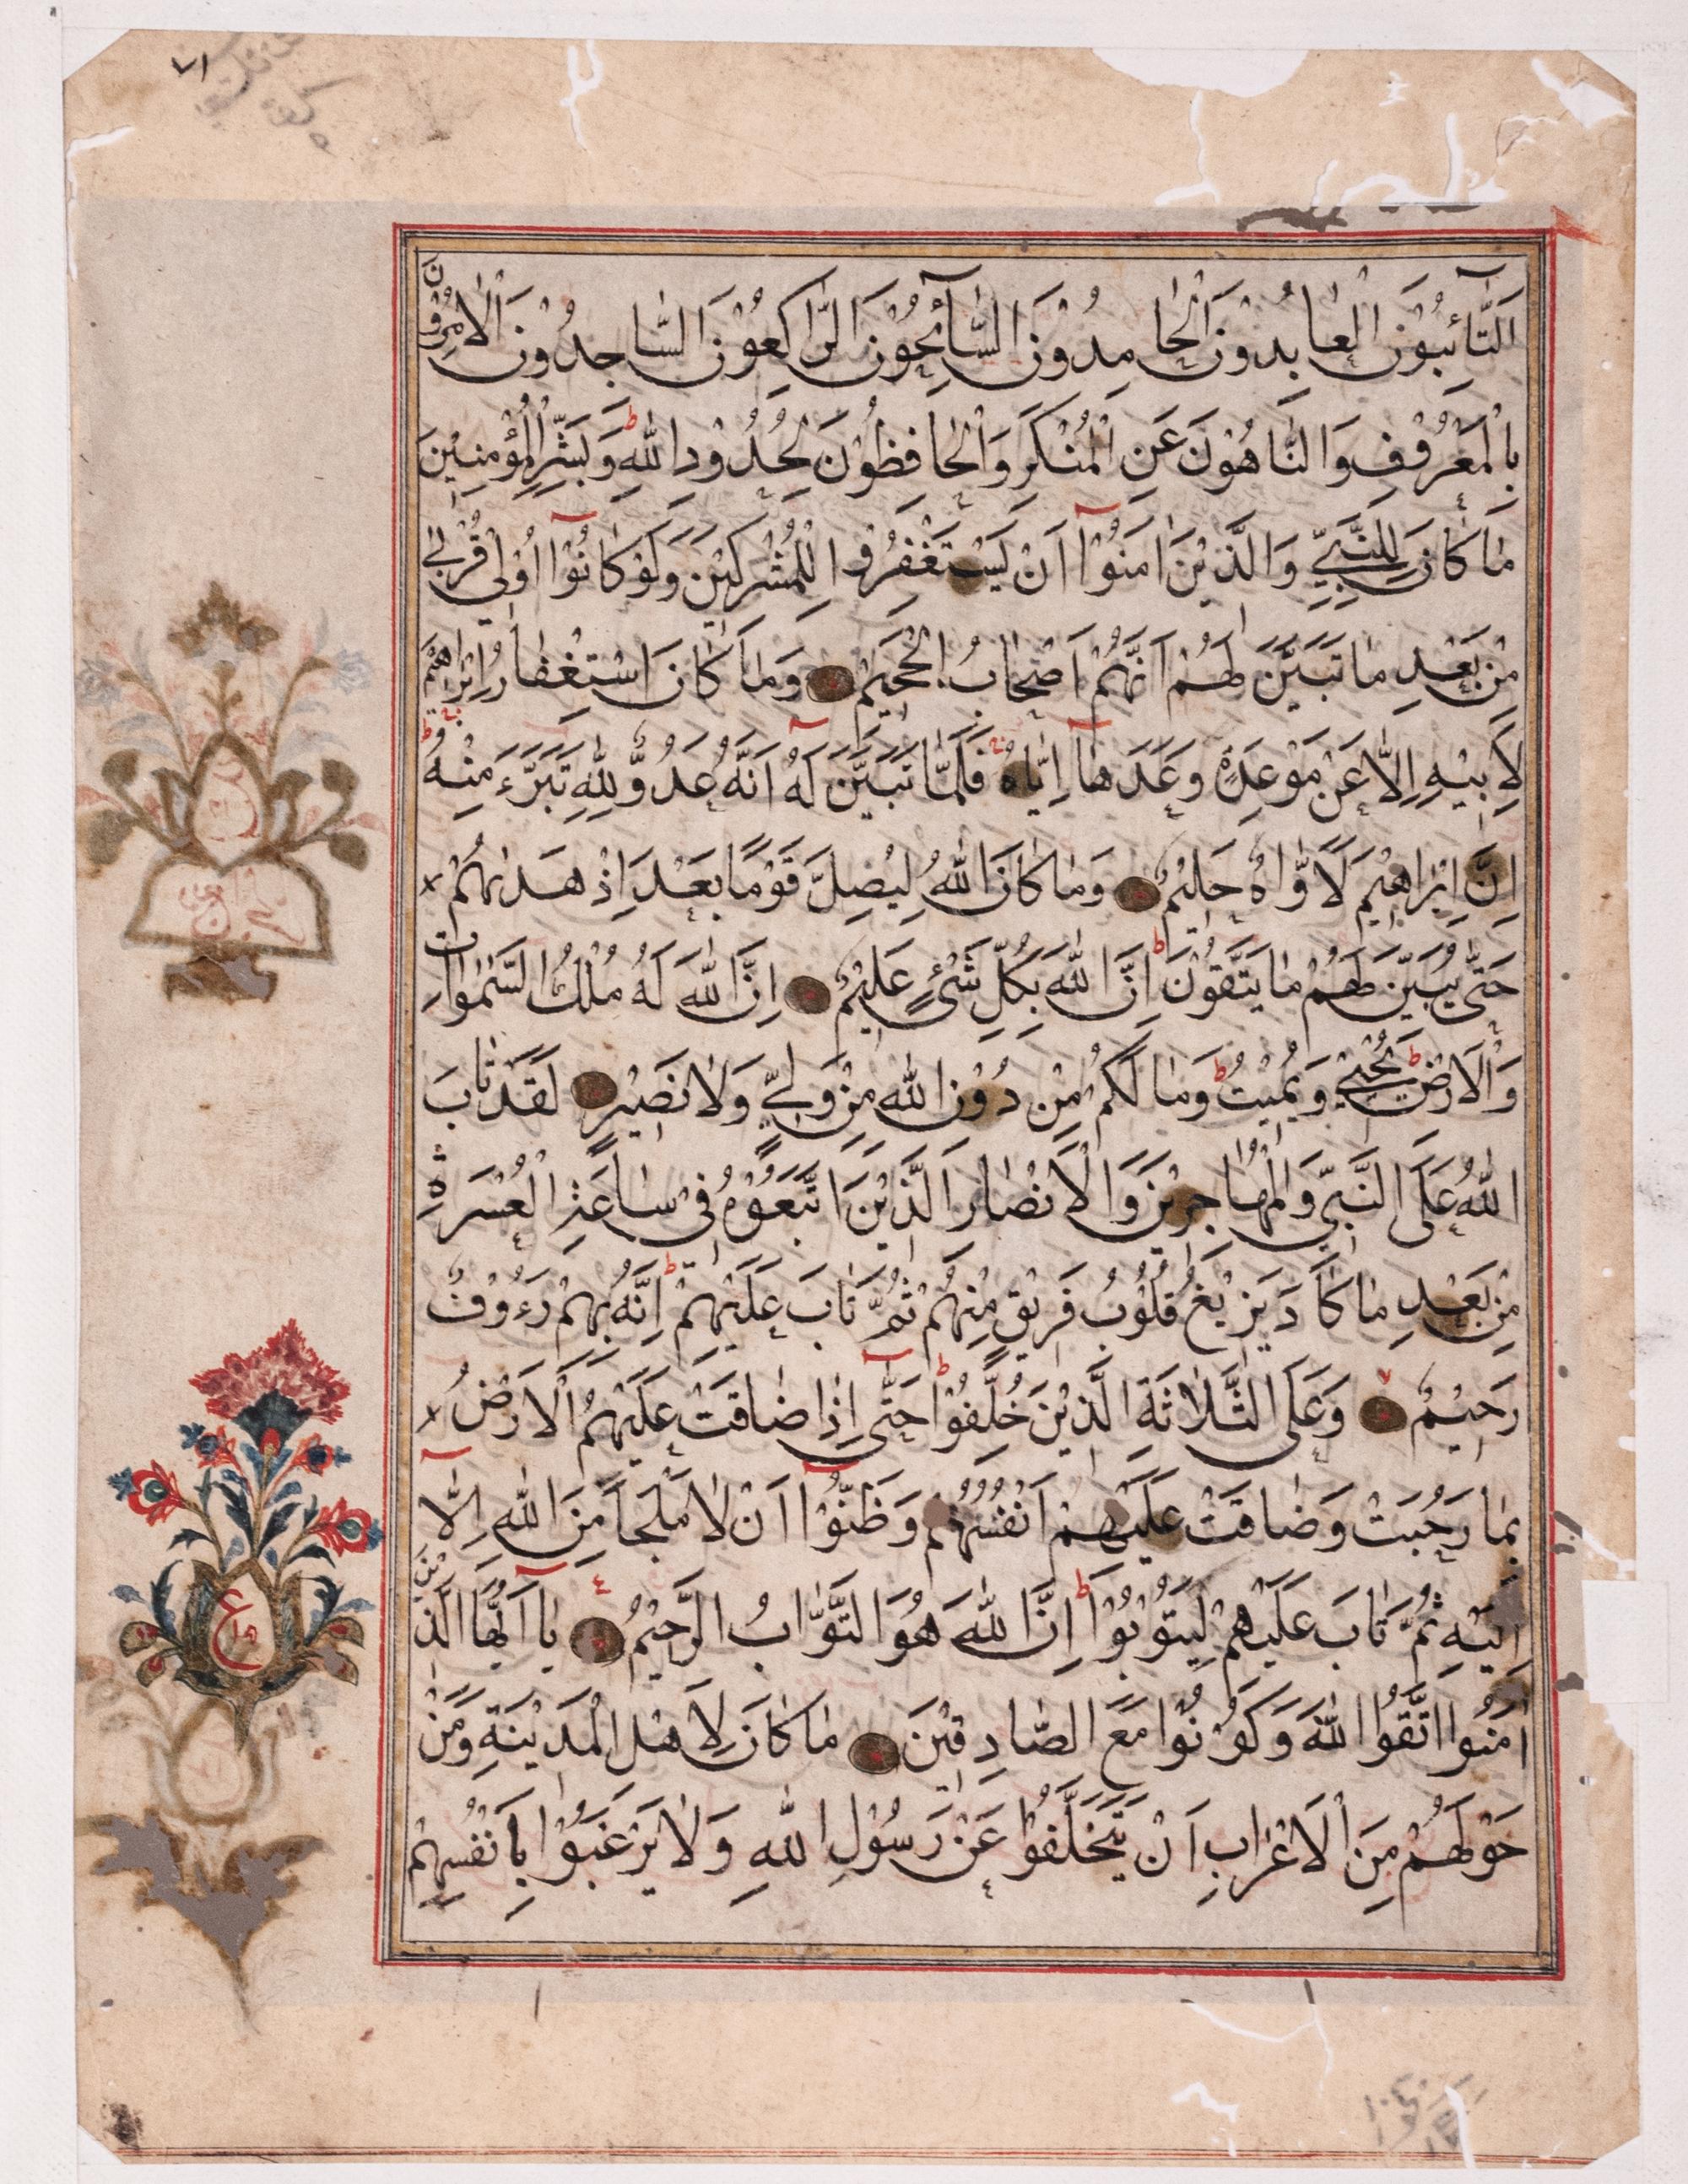 اَلتَّآئِبُوْنَ الْعَابِدُوْنَ الْحَامِدُوْنَ السَّآئِحُوْنَ الرَّاكِعُوْنَ السَّاجِدُوْنَ الْاٰمِرُوْنَ
بِالْمَعْرُوْفِ وَالنَّاهُوْنَ عَنِ الْمُنْكَرِ وَالْحَافِظُوْنَ لِحُدُوْدِ اللّٰهِ ط وَبَشِّرِ الْمُؤْمِنِيْنَ
مَا كَانَ لِلنَّبِيِّ وَالَّذِيْنَ اٰمَنُوْٓا اَنْ يَسْتَغْفِرُوْا لِلْمُشْرِكِيْنَ وَلَوْ كَانُوْٓا اُوْلِيْ قُرْبٰى
مِنْ بَعْدِ مَا تَبَيَّنَ لَهُمْ اَنَّهُمْ اَصْحَابُ الْجَحِيْمِ وَمَا كَانَ اسْتِغْفَارُ اِبْرَاهِيْمَ
لِاَبِيْهِ اِلَّا عَنْ مَوْعِدَةٍ وَعَدَهَآ اِيَّاهُ ج فَلَمَّا تَبَيَّنَ لَهٗٓ اَنَّهٗ عَدُوٌّ لِلّٰهِ تَبَرَّءَ مِنْهُ ط
اِنَّ اِبْرَاهِيْمَ لَاَوَّاهٌ حَلِيْمٌ وَمَا كَانَ اللّٰهُ لِيُضِلَّ قَوْمًا بَعْدَ اِذْ هَدٰىهُمْ
حَتّٰى يُبَيِّنَ لَهُمْ مَا يَتَّقُوْنَ ط اِنَّ اللّٰهَ بِكُلِّ شَيْءٍ عَلِيْمٌ اِنَّ اللّٰهَ لَهٗ مُلْكُ السَّمٰوَاتِ
وَالْاَرْضِ ط يُحْيِيْ وَيُمِيْتُ ط وَمَا لَكُمْ مِنْ دُوْنِ اللّٰهِ مِنْ وَلِيٍّ وَلَا نَصِيْرٍ لَقَدْ تَابَ
اللّٰهُ عَلَى النَّبِيِّ وَالْمُهَاجِرِيْنَ وَالْاَنْصَارِ الَّذِيْنَ اتَّبَعُوْهُ فِيْ سَاعَةِ الْعُسْرَةِ
مِنْ بَعْدِ مَا كَادَ يَزِيْغُ قُلُوْبُ فَرِيْقٍ مِنْهُمْ ثُمَّ تَابَ عَلَيْهِمْ ط اِنَّهٗ بِهِمْ رَءُوْفٌ
رَحِيْمٌ وَعَلَى الثَّلَاثَةِ الَّذِيْنَ خُلِّفُوْا ط حَتّٰٓى اِذَا ضَاقَتْ عَلَيْهِمُ الْاَرْضُ
بِمَا رَحُبَتْ وَضَاقَتْ عَلَيْهِمْ اَنْفُسُهُمْ وَظَنُّوْٓا اَنْ لَا مَلْجَاَ مِنَ اللّٰهِ اِلَّآ
اِلَيْهِ ثُمَّ تَابَ عَلَيْهِمْ لِيَتُوْبُوْا ط اِنَّ اللّٰهَ هُوَ التَّوَّابُ الرَّحِيْمُ يَآ اَيُّهَا الَّذِيْنَ
اٰمَنُوا اتَّقُوا اللّٰهَ وَكُوْنُوْا مَعَ الصَّادِقِيْنَ مَا كَانَ لِاَهْلِ الْمَدِيْنَةِ وَمَنْ
حَوْلَهُمْ مِنَ الْاَعْرَابِ اَنْ يَتَخَلَّفُوْا عَنْ رَسُوْلِ اللّٰهِ وَلَا يَرْغَبُوْا بِاَنْفُسِهِمْ